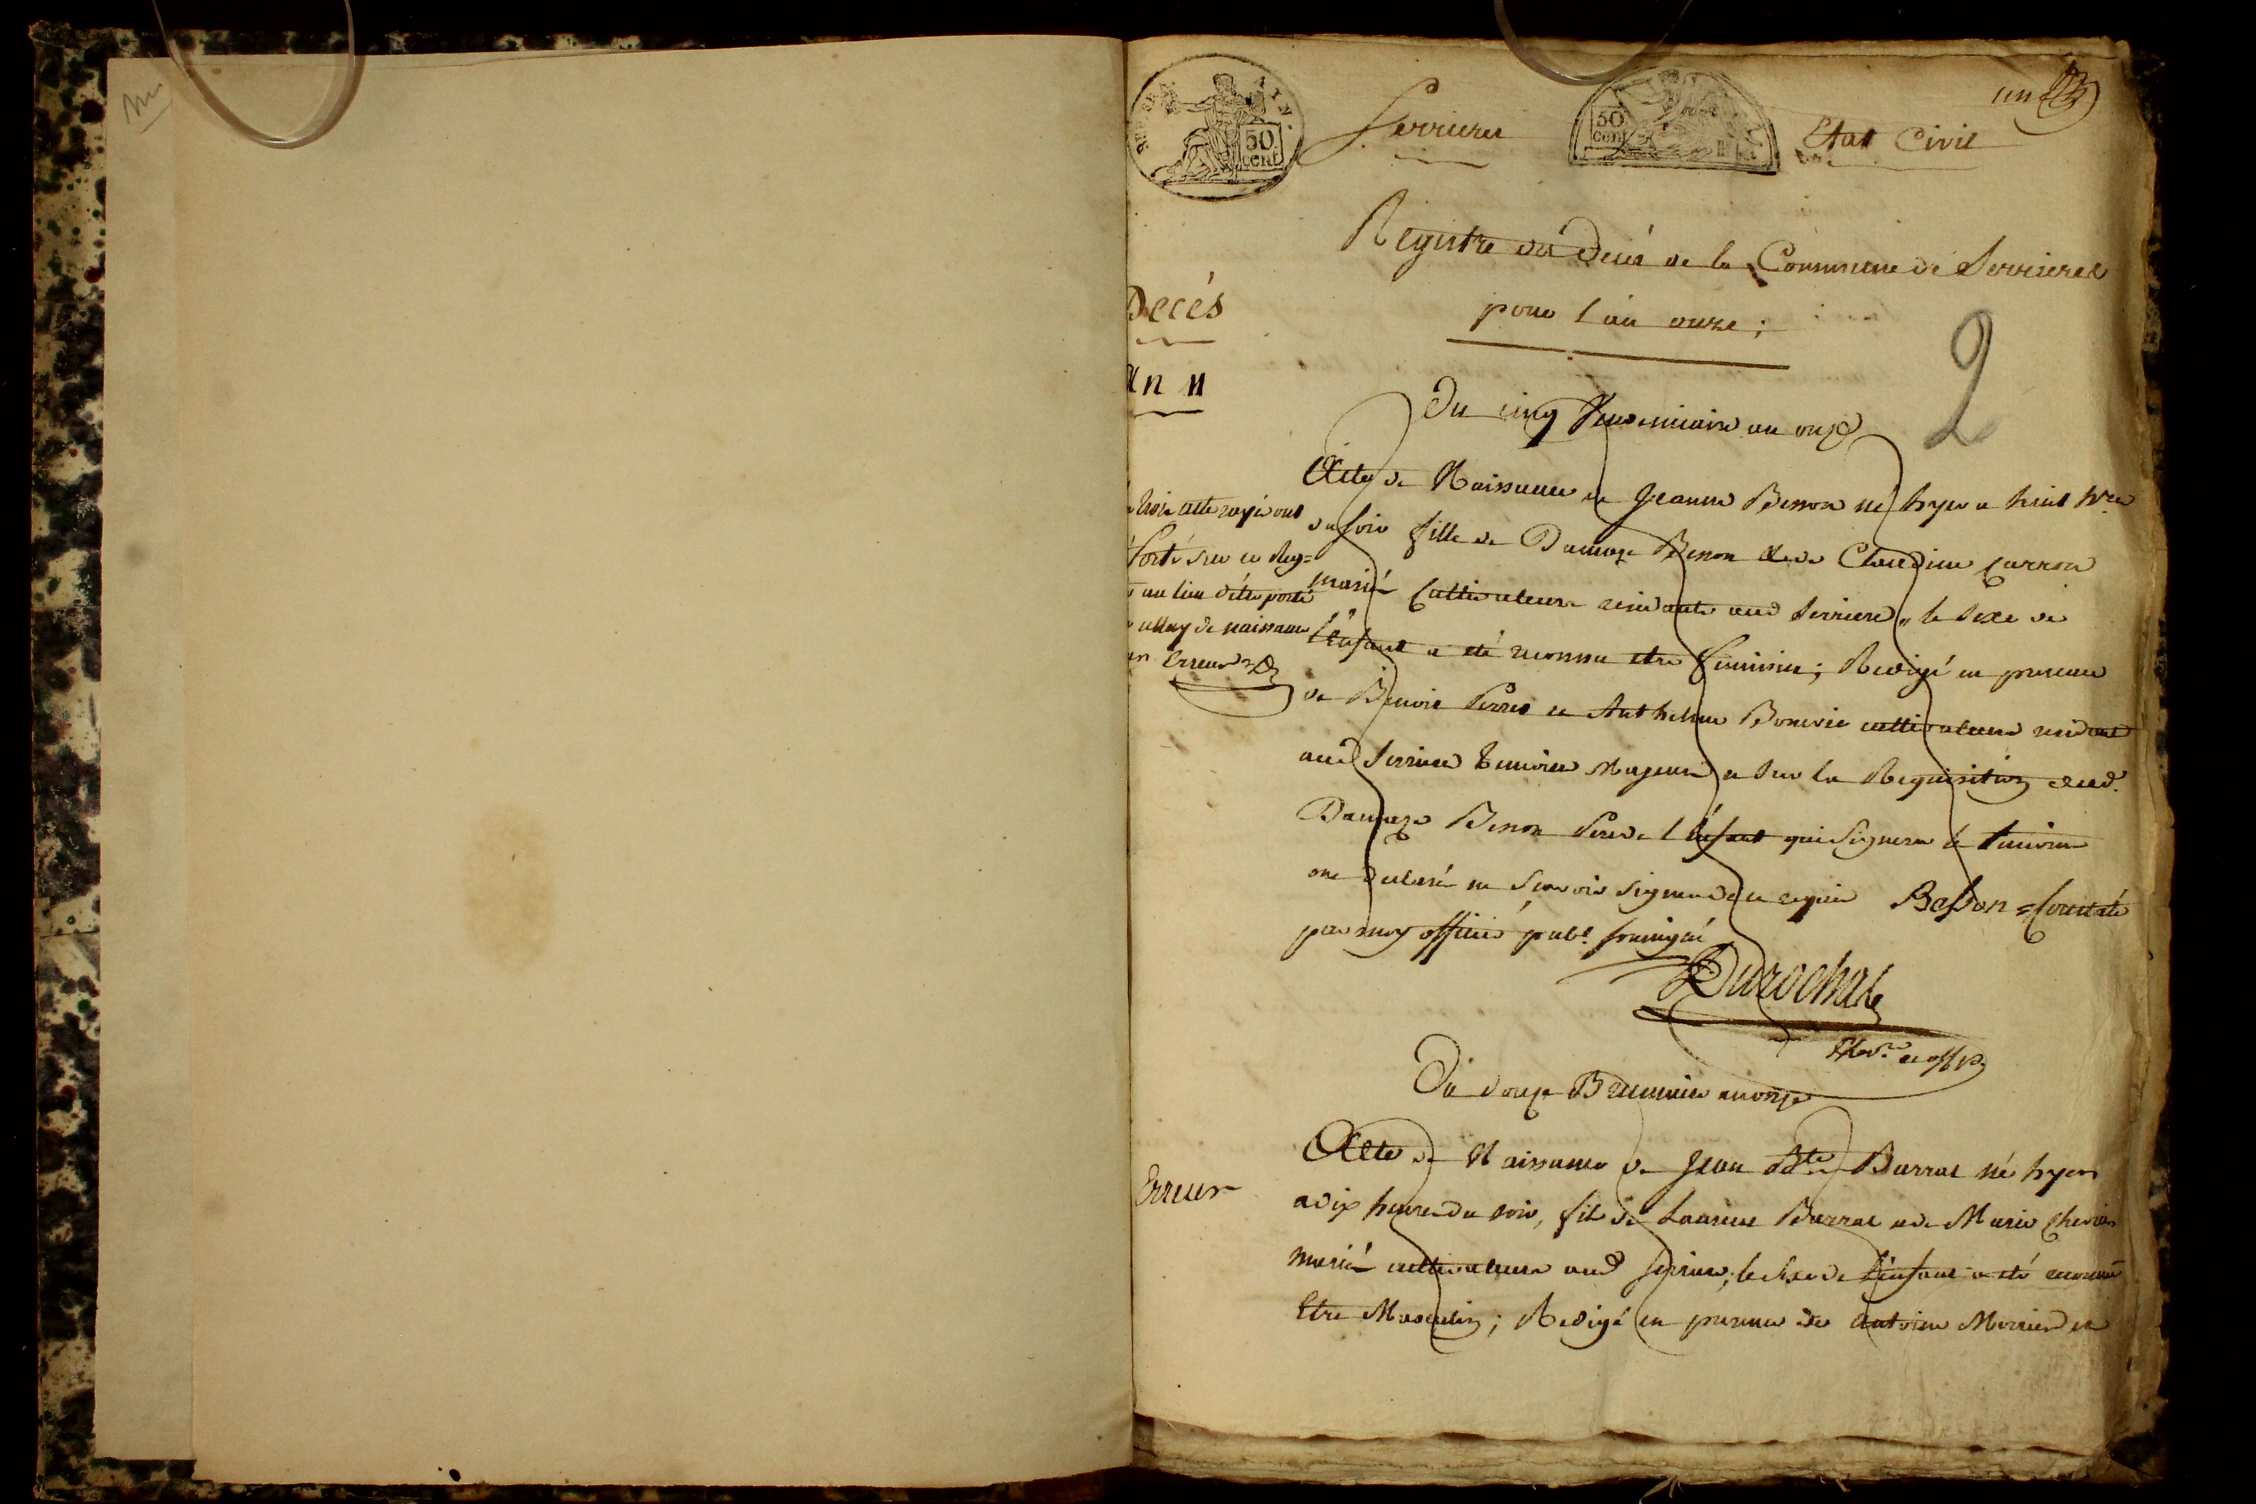 un
Serrieres
Etat Civil
REP. FRA.
50
cent
50
cent
Registre des Decés de la Commune de Serrieres
pour l'an onze ;
Decés
An 11
2
Du cinq Vendemiaire an onze
Acte de Naissance de Jeanne Besson né hyer a huit hres
du soir fille de Damaze Besson & de Claudine Carron
mariés Cultivateurs residants aud Serriere, le sexe de
l'enfant a eté reconnu etre feminin ; Redigé en presence
de Benoit Perret et Anthelme cultivateurs residant
aud Serriere temoins Majeurs et sur la Requisition dud.
Damaze Besson Pere de l'enfant qui signera les temoins
ont declaré ne scavoir signer de ce requis Besson = Constaté
par moy officié publ. soussigné
Durochat
trois acte rayés ont
Porté sur ce Reg=
au lieu d'etre porté
de naissance
Erreur
Du douze Brumaire an onze
Acte de Naissance de Jean Bte Barrat né hyer
a dix heure du soir, fils de Laurent Barrat et de Marie
mariés cultivateurs aud Serriere ; le sexe de l'enfant a eté reconnu
Etre Masculin ; Redigé en presence de Antoine et
Erreur